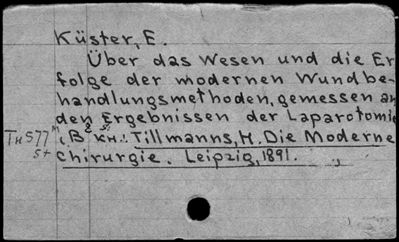 Küster, E.
Über das Wesen und die Er
folge der modernen Wundbe-
handlungsmethoden, gemessen an
den Ergebnissen der Laparotomie
(В кн.: Tillmanns, H. Die Moderne
Chirurgie. Leipzig, 1891.
TH 577